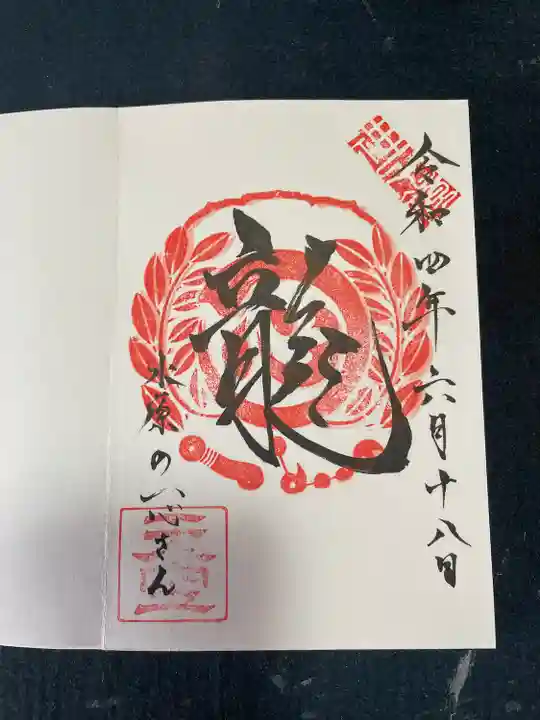 令和四年六月十八日
龍
水原の八心さん